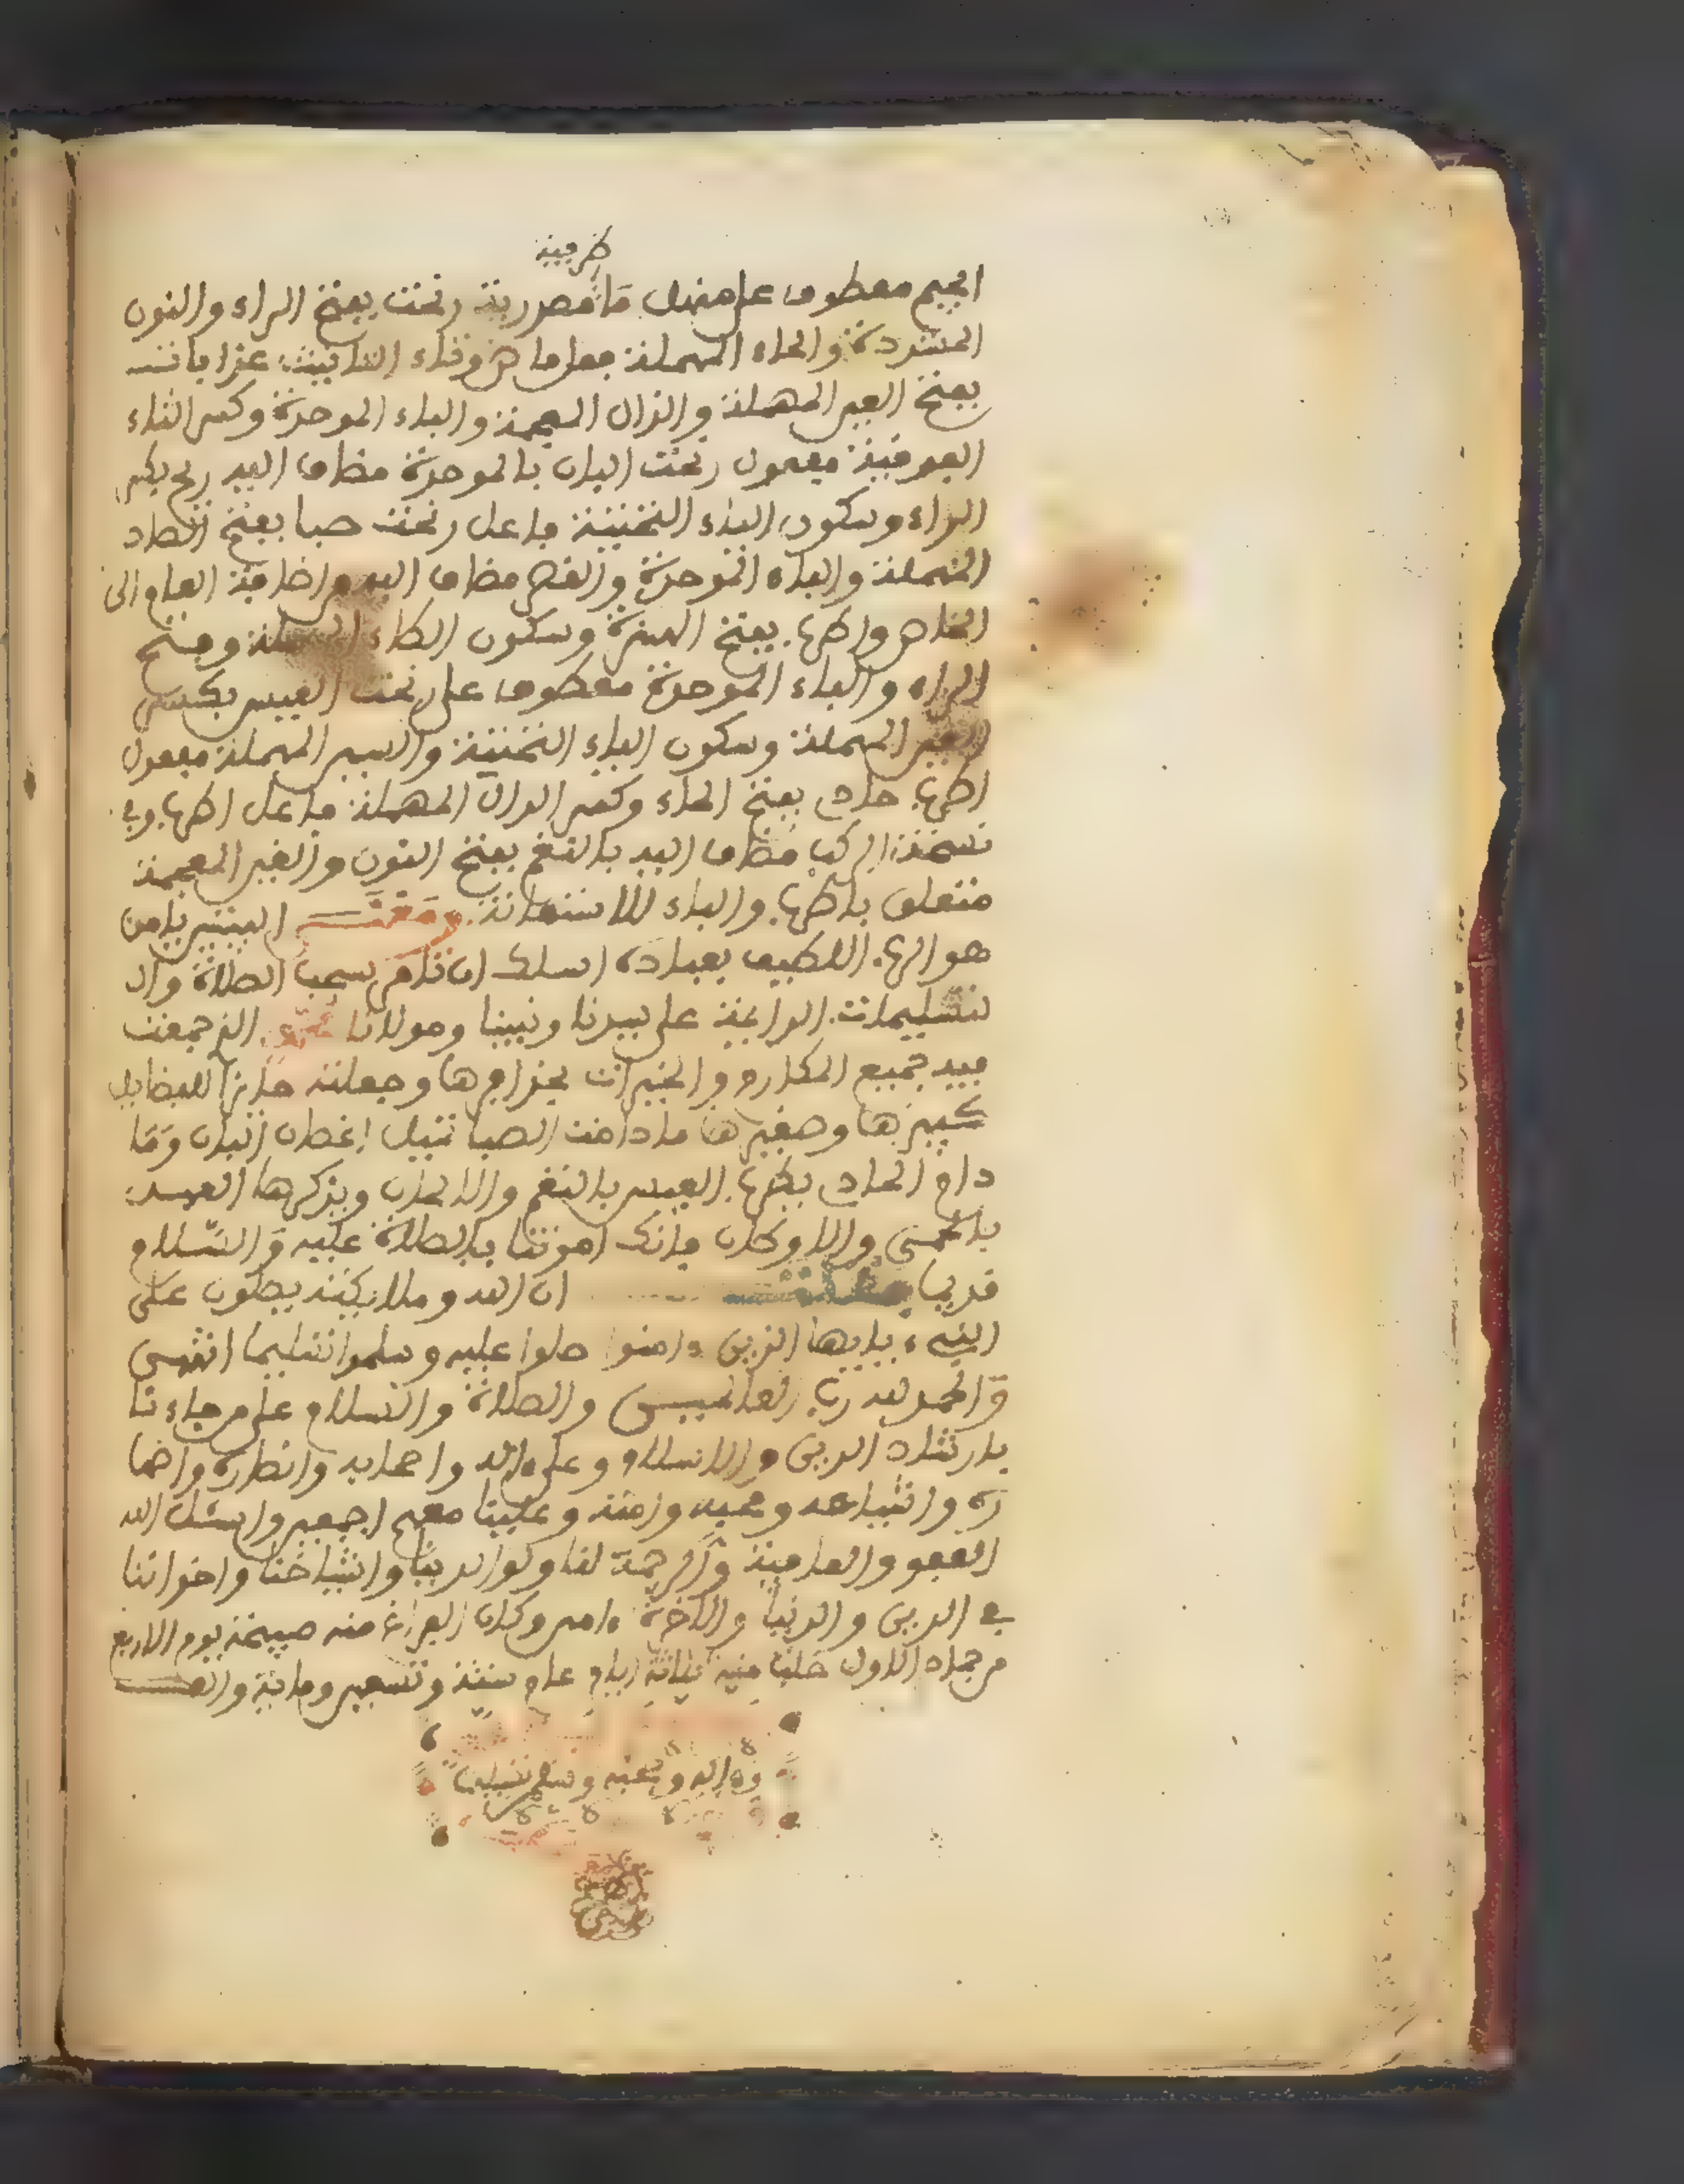 ظرفية
الجيم معطوف على منهل ما مصدرية رنحت بفتح الراء والنون
المشددة والحاء المهملة فعل ماض وتاء التانيث عذبات
بفتح العين المهملة والذال المعجمة والباء الموحدة وكسر التاء
الفوقية مفعول رنحت البان بالموحدة مضاف اليه ريح بكسر
الراء وسكون الياء التحتية فاعل رنحت صبا بفتح الصاد
المهملة والباء الموحدة والقصر مضاف اليه من اضافة العام الى
الخاص واطرب بفتح الهمزة وسكون الطاء المهملة وفتح
الراء والباء الموحدة معطوف على رنحت العيس بكسر
العين المهملة وسكون الياء التحتية والسين المهملة مفعول
اطرب حادي بفتح الحاء وكسر الدال المهملة فاعل اطرب وفي
نسخة الركب مضاف اليه بالنغم بفتح النون والغين المعجمة
متعلق باطرب والباء للاستعانة ومعنى البيتين يا من
هو الرب اللطيف بعباده اسلك ان تامر سحب الصلاة وال
تسليمات الدايمة على سيدنا ونبينا ومولانا محمد الذي جمعت
فيه جميع المكارم والخيرات بحذافرها وجعلته حايزا للفضايل
كبيرها وصغيرها ما دامت الصبا تميل اغصان البان وما
دام الحادي يطرب العيس بالنغم والالحان ويذكرها العهد
بالحمى والاوطان فانك امرتنا بالصلاة عليه والسلام
قديما ان الله وملايكته يصلون على
النبيء يايها الذين ءامنوا صلوا عليه وسلموا تسليما انتهى
والحمد لله رب العالمين والصلاة والسلام على من جاءنا
بارشاد الدين والاسلام وعلى ءاله واصحابه وانصاره واصها
ره واشياعه ومحبيه وامته وعلينا معهم اجمعين واسئل الله
العفو والعافية والرحمة لنا ولوالدينا واشياخنا واخواننا
في الدين والدنيا والاخرة ءامين وكان الفراغ منه صبيحة يوم الاربع
من جماد الاول خلت منه ثلاثة ايام عام ستة وتسعين ومائة والف
وءاله وصحبه وسلم تسليما